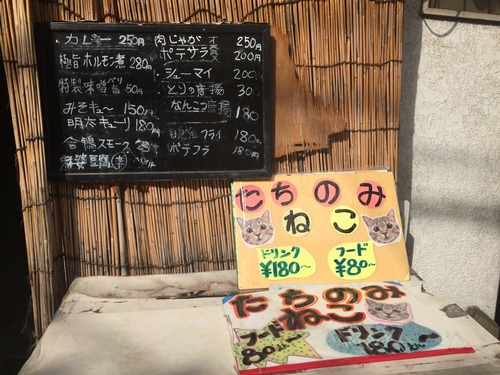 カレー 250円
極旨ホルモン煮 280円
特製味噌 50円
みそキュー 150円
明太キューリ 180円
合鴨スモーク
豆腐
肉じゃが 250円
ポテサラ 200円
シューマイ 200
とりの唐揚 300
なんこつ唐揚 180
フライ 180
ポテフラ 180円
たちのみ
ねこ
ドリンク
¥180~
フード
¥80~
たちのみ
ねこ
フード
80~
ドリンク
180~